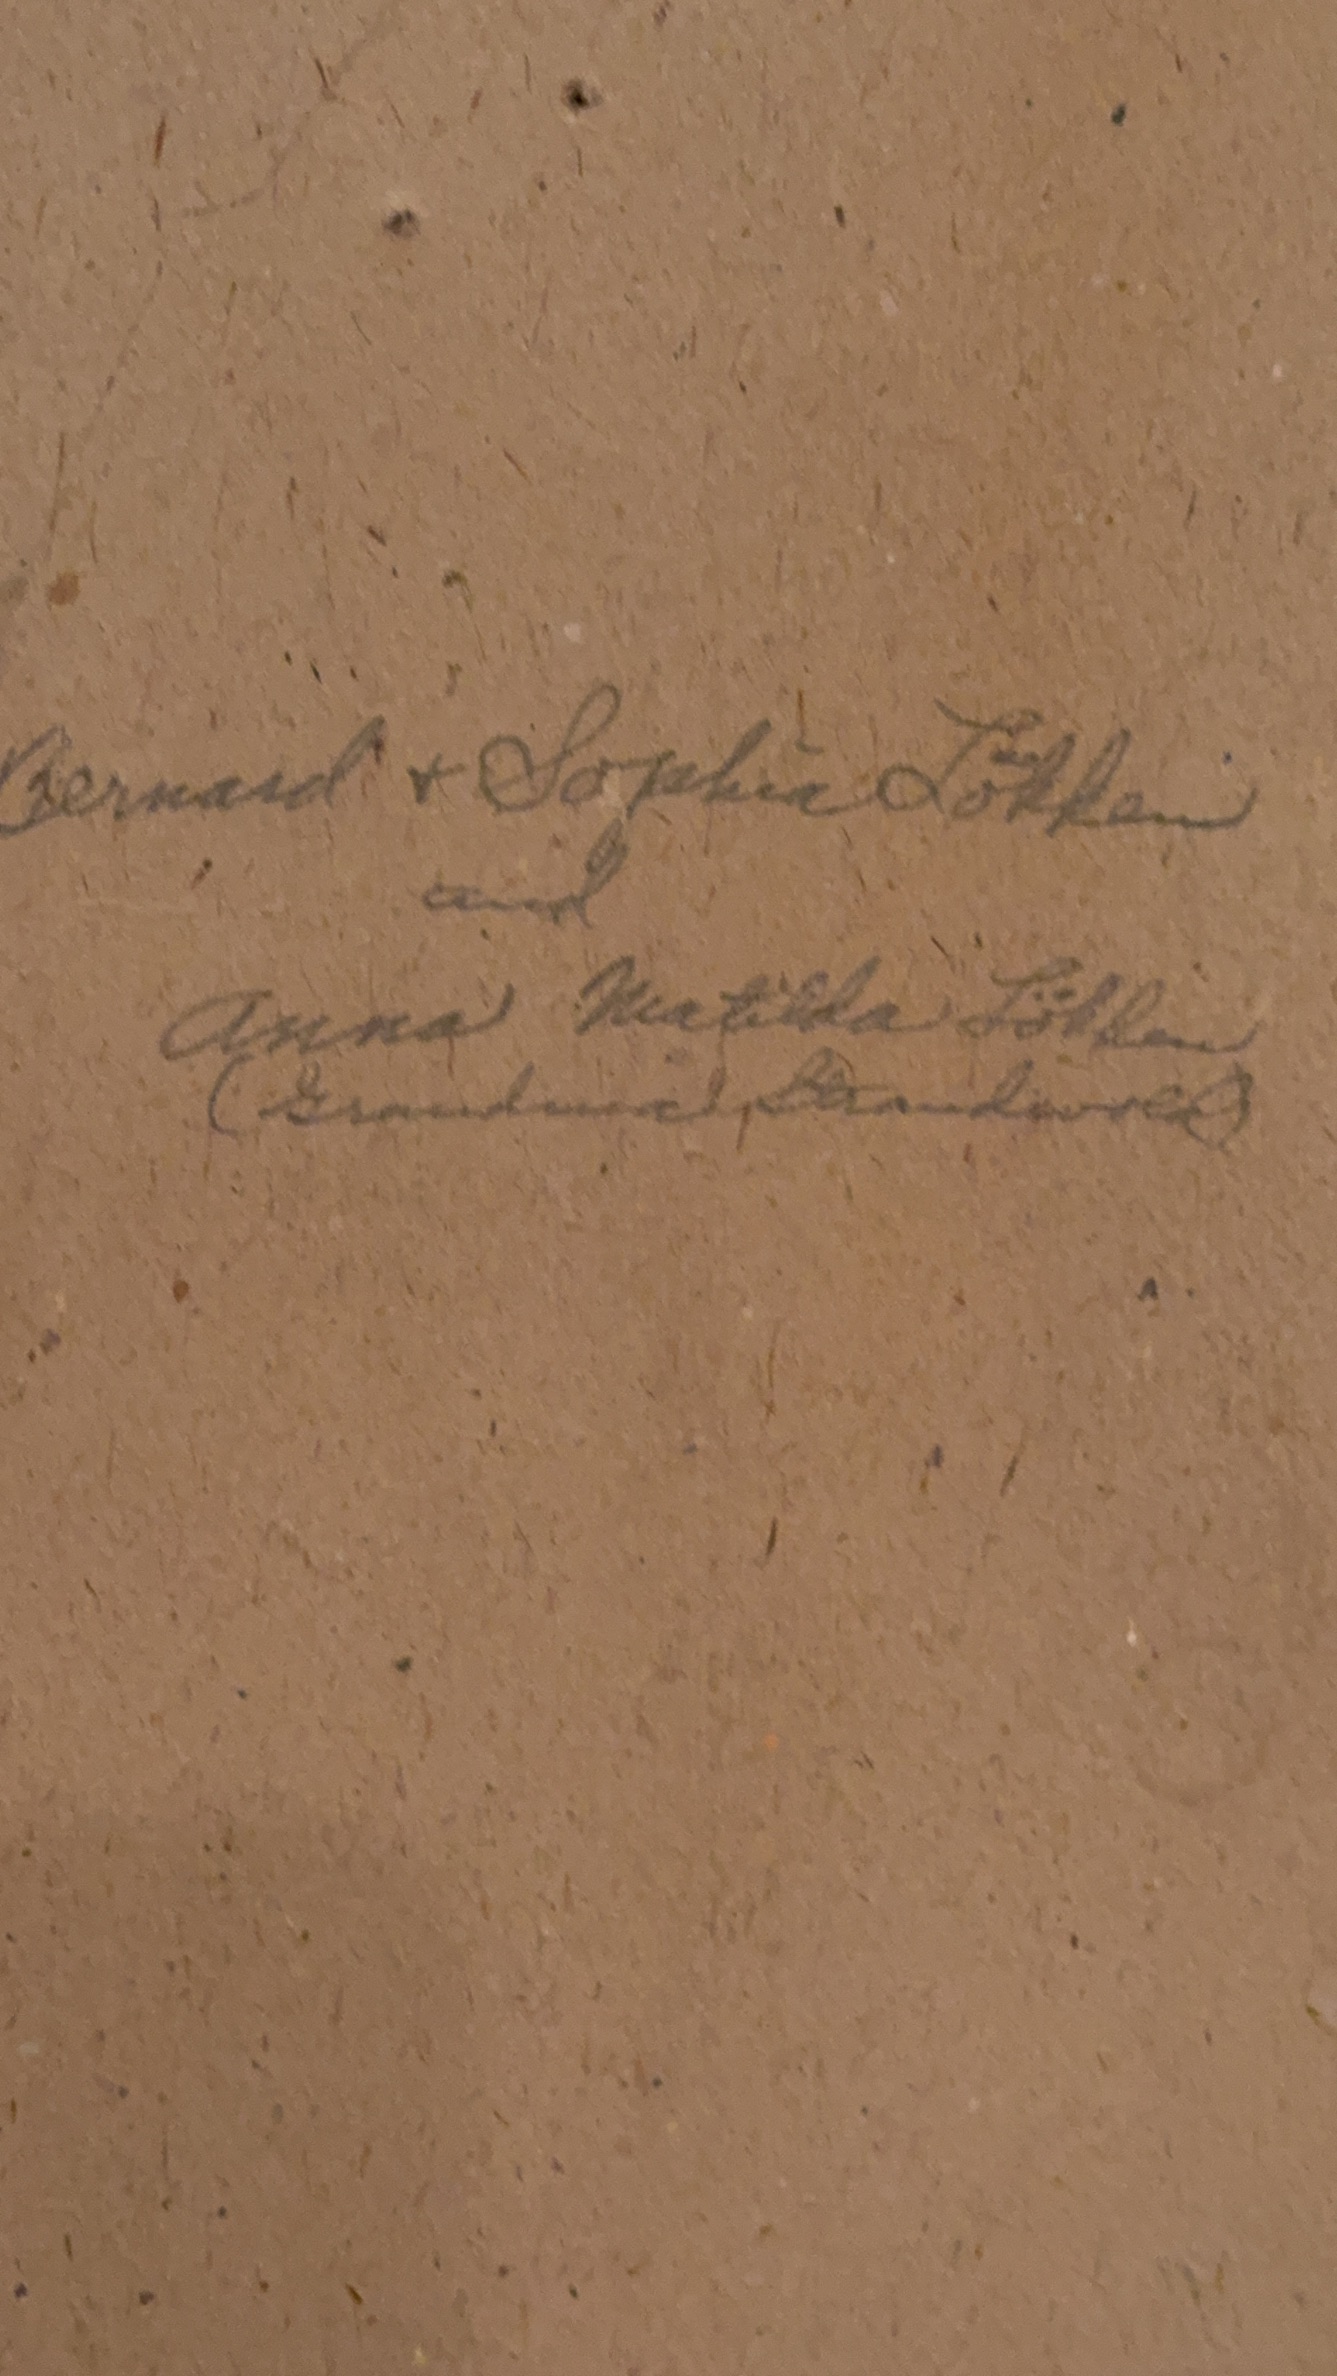 Bernard + Sophia Lökken
and
Anna Matilda Lökken
(Grandma Strandvold)